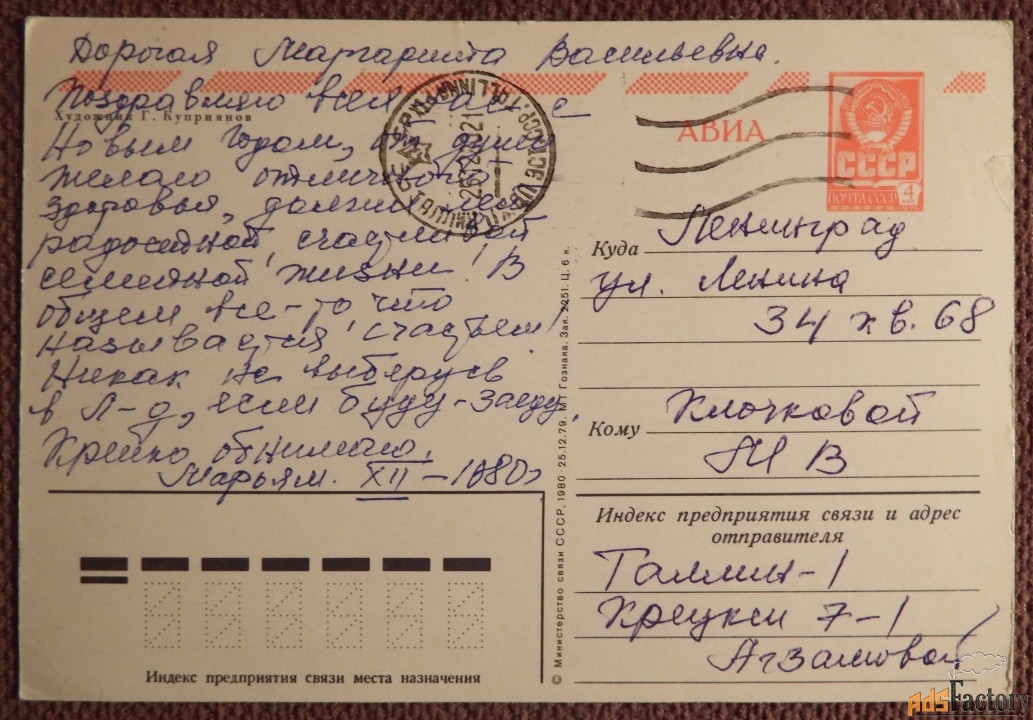 Дорогая Маргарита Васильевна.
Поздравляю всех вас с
Художник Г. Куприянов
Новым годом, от души
желаю отличного
здоровья, долгих лет
радостной, счастливой
семейной жизни! В
общем все-то что
называется счастьем!
Никак не выберусь
в Л-д, если буду-заеду,
Крепко обнимаю,
Марьям. XII-1980г
АВИА
СССР
ПОЧТА СССР
4
Куда Ленинград
ул. Ленина
34 кв. 68
Кому Клочковой
М В
Индекс предприятия связи и адрес
отправителя
Таллин-1
Крейцки 7-1
Агзамовой
Индекс предприятия связи места назначения
© Министерство связи СССР, 1980 · 25.12.79. МТ Гознака. Зак. 2251. Ц. 6 к.
AdsFactory